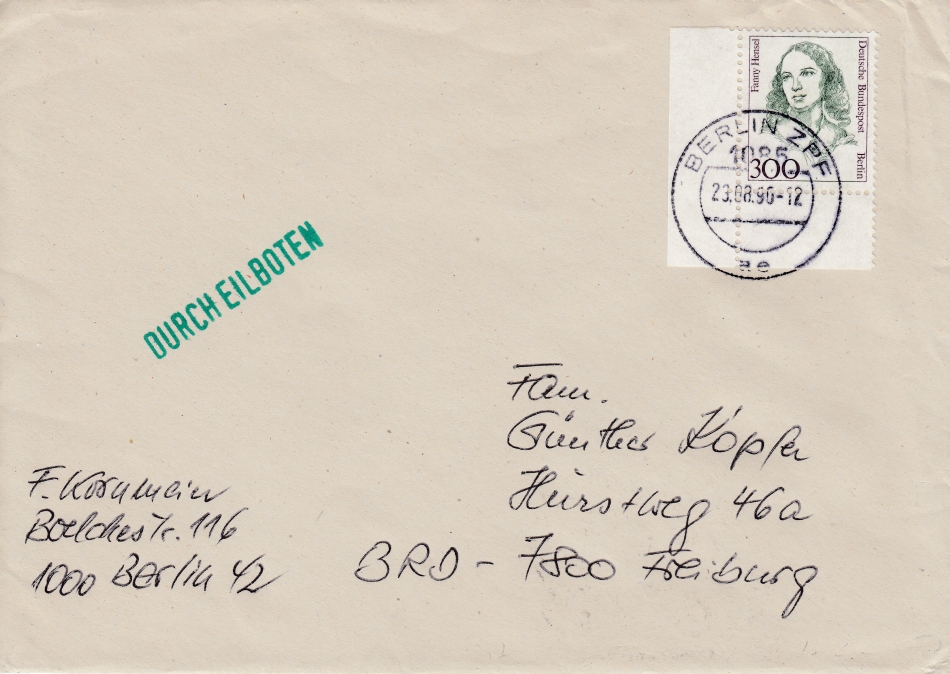 Fanny Hensel
Deutsche Bundespost Berlin
300
BERLIN ZPF
1085
23.08.90-12
ae
DURCH EILBOTEN
Fam.
Günther Kopfer
Hürstweg 46a
BRD - 7800 Freiburg
F. Kornmeier
Boelckestr. 116
1000 Berlin 42